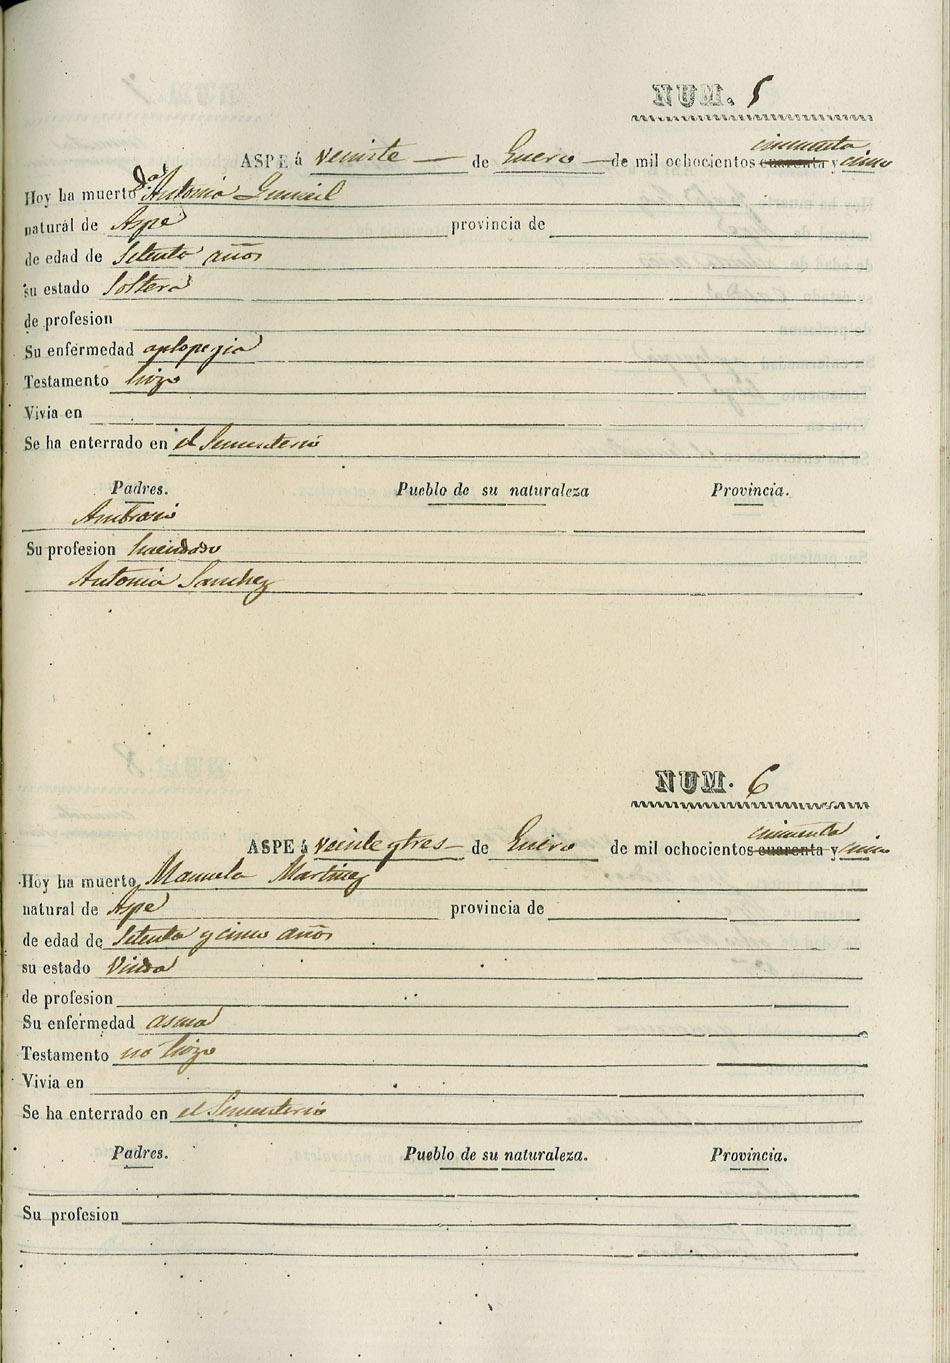 NUM. 5
ASPE á veinte de Enero de mil ochocientos cuarenta cincuenta y cinco
Hoy ha muerto Dª Antonia Gumiel
natural de Aspe provincia de
de edad de Setenta años
su estado Soltera
de profesion
Su enfermedad aplopegia
Testamento hizo
Vivia en
Se ha enterrado en el Sementerio
Padres. Pueblo de su naturaleza Provincia.
Ambrosio
Su profesion hacendado
Antonia Sanchez
NUM. 6
ASPE á veinte y tres de Enero de mil ochocientos cuarenta cincuenta y cinco
Hoy ha muerto Manuela Martinez
natural de Aspe provincia de
de edad de Setenta y cinco años
su estado Viuda
de profesion
Su enfermedad asma
Testamento no hizo
Vivia en
Se ha enterrado en el Sementerio
Padres. Pueblo de su naturaleza. Provincia.
Su profesion